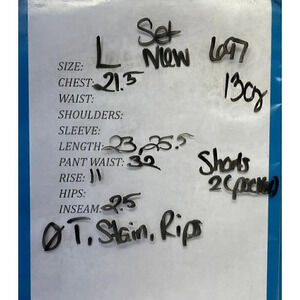 Set
SIZE: L New
CHEST: 21.5 13oz
WAIST:
SHOULDERS:
SLEEVE:
LENGTH: 23, 25.5
PANT WAIST: 32 Shorts
RISE: 11 2(
HIPS:
INSEAM: 2.5
Ø T, Stain, Rips